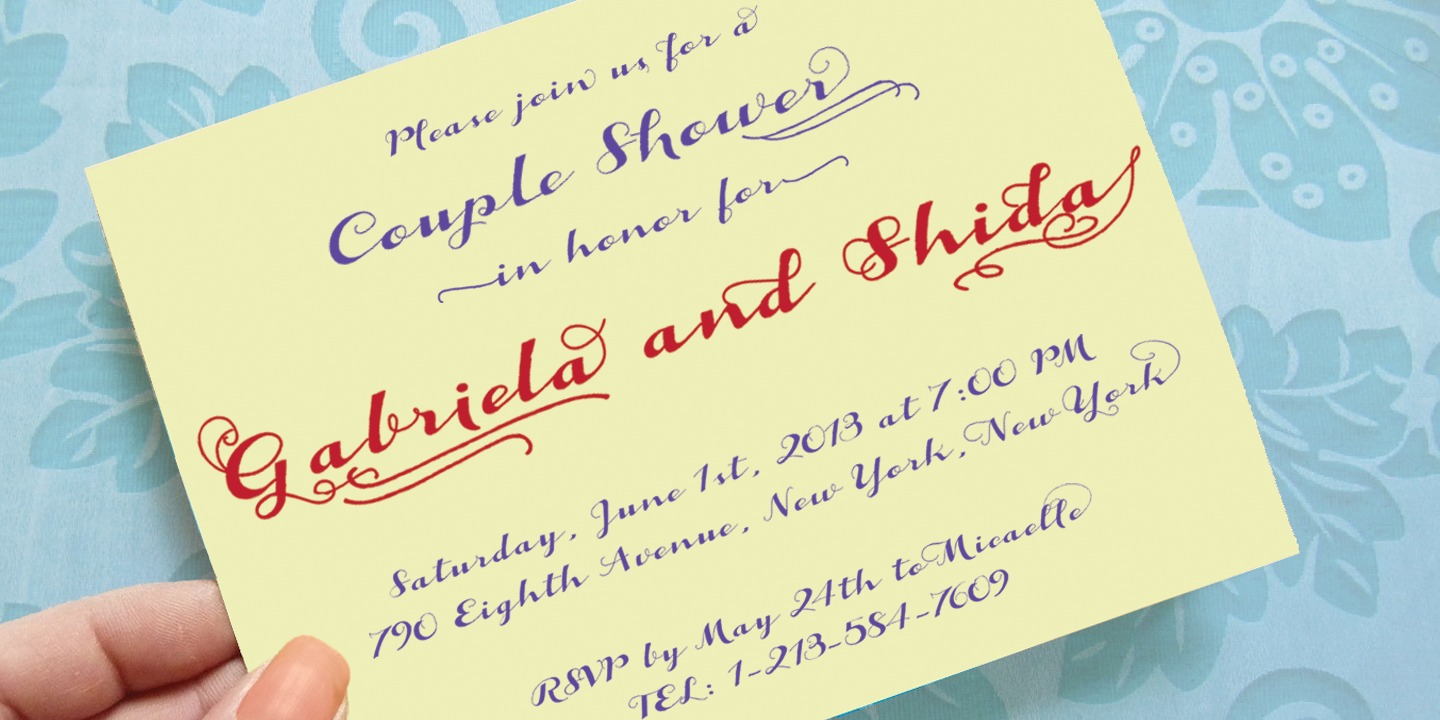 Please join us for a
Couple Shower
in honor for
Gabriela and Shida
Saturday, June 1st, 2013 at 7:00 PM
790 Eighth Avenue, New York, New York
RSVP by May 24th to Micaelle
TEL: 1-213-584-7609